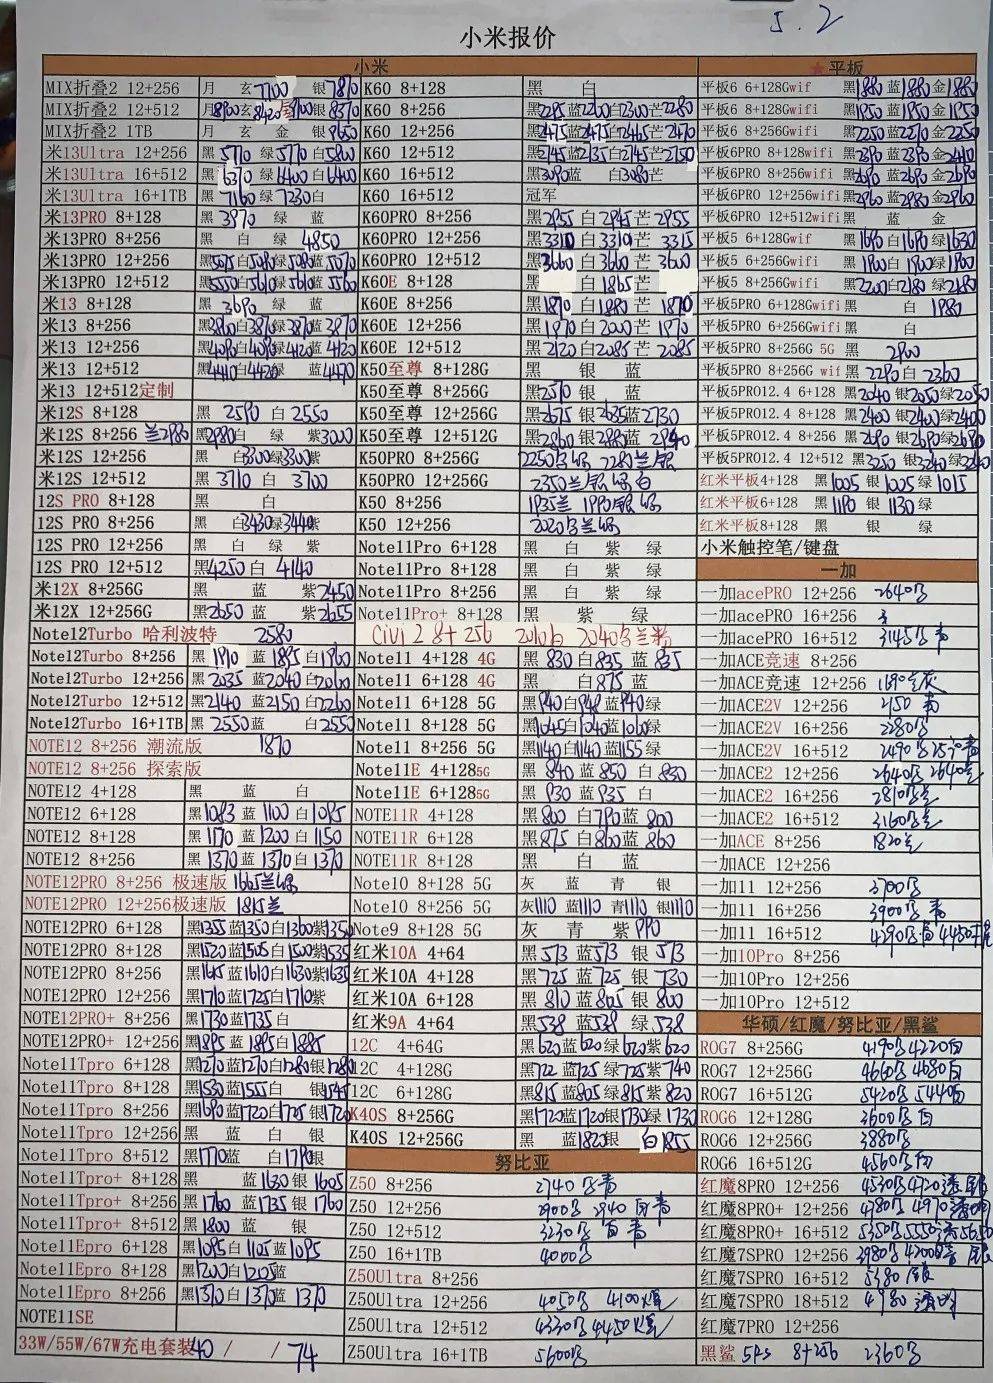 5.2
小米报价
小米
MIX折叠2 12+256 月 玄7700 银7870
MIX折叠2 12+512 月8900玄8420金8900银8370
MIX折叠2 1TB 月 玄 金 银9650
米13Ultra 12+256 黑5770 绿5770白5800
米13Ultra 16+512 黑6370绿6400白6400
米13Ultra 16+1TB 黑7160绿7230白
米13PRO 8+128 黑3970 绿 蓝
米13PRO 8+256 黑 白 绿 4850
米13PRO 12+256 黑5075白5080绿5080蓝5070
米13PRO 12+512 黑5550白5610绿5610蓝5550
米13 8+128 黑 3690 绿 蓝
米13 8+256 黑3860白3870绿3870蓝3870
米13 12+256 黑4090白4090绿4120蓝4120
米13 12+512 黑4410白4420绿 蓝4470
米13 12+512定制
米12S 8+128 黑 2590 白 2550
米12S 8+256 兰2980 黑2980白 绿 紫3000
米12S 12+256 黑 白3300绿3300紫
米12S 12+512 黑 3710 白 3700
12S PRO 8+128 黑 白
12S PRO 8+256 黑 白3430绿3440紫
12S PRO 12+256 黑 白 绿 紫
12S PRO 12+512 黑4250 白 4140
米12X 8+256G 黑 蓝 紫2450
米12X 12+256G 黑2650 蓝 紫2655
Note12Turbo 哈利波特 2580
Note12Turbo 8+256 黑 1910 蓝1895白1960
Note12Turbo 12+256 黑 2035 蓝2040白2060
Note12Turbo 12+512 黑2140 蓝2150白2260
Note12Turbo 16+1TB 黑 2550蓝 白2550
NOTE12 8+256 潮流版 1870
NOTE12 8+256 探索版
NOTE12 4+128 黑 蓝 白
NOTE12 6+128 黑1083 蓝1100白1095
NOTE12 8+128 黑1170 蓝1200白1150
NOTE12 8+256 黑1370蓝1370白1370
NOTE12PRO 8+256 极速版 1665兰绿
NOTE12PRO 12+256极速版 1815兰
NOTE12PRO 6+128 黑1355蓝1350白1360紫1350
NOTE12PRO 8+128 黑1520蓝1505白1500紫1535
NOTE12PRO 8+256 黑1645蓝1610白1630紫1635
NOTE12PRO 12+256 黑1710蓝1725白1710紫
NOTE12PRO+ 8+256 黑1730蓝1735白
NOTE12PRO+ 12+256 黑1895蓝1895白1885
Note11Tpro 6+128 黑1270蓝1270白1280银1280
Note11Tpro 8+128 黑1530蓝1555白 银1545
Note11Tpro 8+256 黑1690蓝1720白1725银1720
Note11Tpro 12+256 黑 蓝 白 银
Note11Tpro 8+512 黑1770蓝 白1790银
Note11Tpro+ 8+128 黑 蓝1630银1605
Note11Tpro+ 8+256 黑1760蓝1735银1760
Note11Tpro+ 8+512 黑1800蓝 银
Note11Epro 6+128 黑1095白1105蓝1095
Note11Epro 8+128 黑1200白1205蓝
Note11Epro 8+256 黑1370白1370蓝 1370
NOTE11SE
33W/55W/67W充电套装40 / / 74
K60 8+128 黑 白
K60 8+256 黑2285蓝2200白2300芒2280
K60 12+256 黑2475蓝2475白2465芒2470
K60 12+512 黑2745蓝2735白2745芒2750
K60 16+512 黑3090蓝 白3080芒
K60 16+512 冠军
K60PRO 8+256 黑2955白2945芒2955
K60PRO 12+256 黑3310白3310芒 3315
K60PRO 12+512 黑3660白3660芒 3600
K60E 8+128 黑 白1865芒
K60E 8+256 黑1870 白1880芒 1870
K60E 12+256 黑1970白2000芒 1970
K60E 12+512 黑2120白2085芒 2085
K50至尊 8+128G 黑 银 蓝
K50至尊 8+256G 黑2510 银 蓝
K50至尊 12+256G 黑2675 银2635蓝2730
K50至尊 12+512G 黑2860银2880蓝 2940
K50PRO 8+256G 2250 2280兰银
K50PRO 12+256G 2350兰银绿白
K50 8+256 1935兰 1990银绿
K50 12+256 2020 兰绿
Note11Pro 6+128 黑 白 紫 绿
Note11Pro 8+128 黑 白 紫 绿
Note11Pro 8+256 黑 白 紫 绿
Note11Pro+ 8+128 黑 紫 绿
Civi 2 8+256 2010白 2040 兰粉
Note11 4+128 4G 黑 830白835 蓝 835
Note11 6+128 4G 黑 白875蓝
Note11 6+128 5G 黑940白948蓝940绿
Note11 8+128 5G 黑1045白1040蓝1060绿
Note11 8+256 5G 黑1140白1140蓝1155绿
Note11E 4+1285G 黑 840 蓝 850 白 830
Note11E 6+1285G 黑 930 蓝 935 白
NOTE11R 4+128 黑800 白790蓝 800
NOTE11R 6+128 黑875 白860蓝 860
NOTE11R 8+128 黑 白 蓝
Note10 8+128 5G 灰 蓝 青 银
Note10 8+256 5G 灰1110 蓝1110 青1110 银1110
Note9 8+128 5G 灰 青 紫990
红米10A 4+64 黑573蓝573 银 573
红米10A 4+128 黑725蓝725 银 730
红米10A 6+128 黑 810 蓝805 银 800
红米9A 4+64 黑538蓝538 绿 538
12C 4+64G 黑620蓝620绿620紫620
12C 4+128G 黑722蓝725绿725紫740
12C 6+128G 黑815蓝805绿815紫820
K40S 8+256G 黑1720蓝1720银1730绿1730
K40S 12+256G 黑 蓝1820银 白1855
努比亚
Z50 8+256 2740 青
Z50 12+256 2900 2940 白青
Z50 12+512 3230 白青
Z50 16+1TB 4000
Z50Ultra 8+256
Z50Ultra 12+256 4050 4100
Z50Ultra 12+512 4330 4450
Z50Ultra 16+1TB 5600
平板
平板6 6+128Gwif 黑1880蓝1880金1880
平板6 8+128Gwifi 黑1950蓝1950金1950
平板6 8+256Gwifi 黑2250蓝2270金2250
平板6PRO 8+128wifi 黑2390蓝2390金2440
平板6PRO 8+256wifi 黑2690蓝2690金2690
平板6PRO 12+256wifi 黑2960蓝2980金2960
平板6PRO 12+512wifi 黑 蓝 金
平板5 6+128Gwif 黑1690白1690绿1630
平板5 6+256Gwifi 黑1900白1900绿1900
平板5 8+256Gwifi 黑2200白2180绿2180
平板5PRO 6+128Gwifi 黑 白 1980
平板5PRO 6+256Gwifi 黑 白
平板5PRO 8+256G 5G 黑 2900
平板5PRO 8+256G wif 黑2290白 2360
平板5PRO12.4 6+128 黑2040银2050绿2050
平板5PRO12.4 8+128 黑2400银2400绿2400
平板5PRO12.4 8+256 黑2690银2680绿2680
平板5PRO12.4 12+512 黑3250 银3240绿3240
红米平板4+128 黑1005 银1005绿 1015
红米平板6+128 黑 1190 银 1130绿
红米平板8+128 黑 银 绿
小米触控笔/键盘
一加
一加acePRO 12+256 2640
一加acePRO 16+256
一加acePRO 16+512 3145 青
一加ACE竞速 8+256
一加ACE竞速 12+256 1690 灰
一加ACE2V 12+256 2150 青
一加ACE2V 16+256 2280
一加ACE2V 16+512 2490 2520青
一加ACE2 12+256 2640 2640
一加ACE2 16+256 2810
一加ACE2 16+512 3160
一加ACE 8+256 1820
一加ACE 12+256
一加11 12+256 3700
一加11 16+256 3900 青
一加11 16+512 4390 青 4450
一加10Pro 8+256
一加10Pro 12+256
一加10Pro 12+512
华硕/红魔/努比亚/黑鲨
ROG7 8+256G 4190 4220白
ROG7 12+256G 4660 4680白
ROG7 16+512G 5420 5440白
ROG6 12+128G 3600 白
ROG6 12+256G 3880
ROG6 16+512G 4560 白
红魔8PRO 12+256 4530 4720透 银
红魔8PRO+ 12+256 4780 4970透
红魔8PRO+ 16+512 5350 5550透5650
红魔7SPRO 12+256 3980 4200 银
红魔7SPRO 16+512 5380 银
红魔7SPRO 18+512 4980 透明
红魔7PRO 12+256
黑鲨 5Rs 8+256 2360